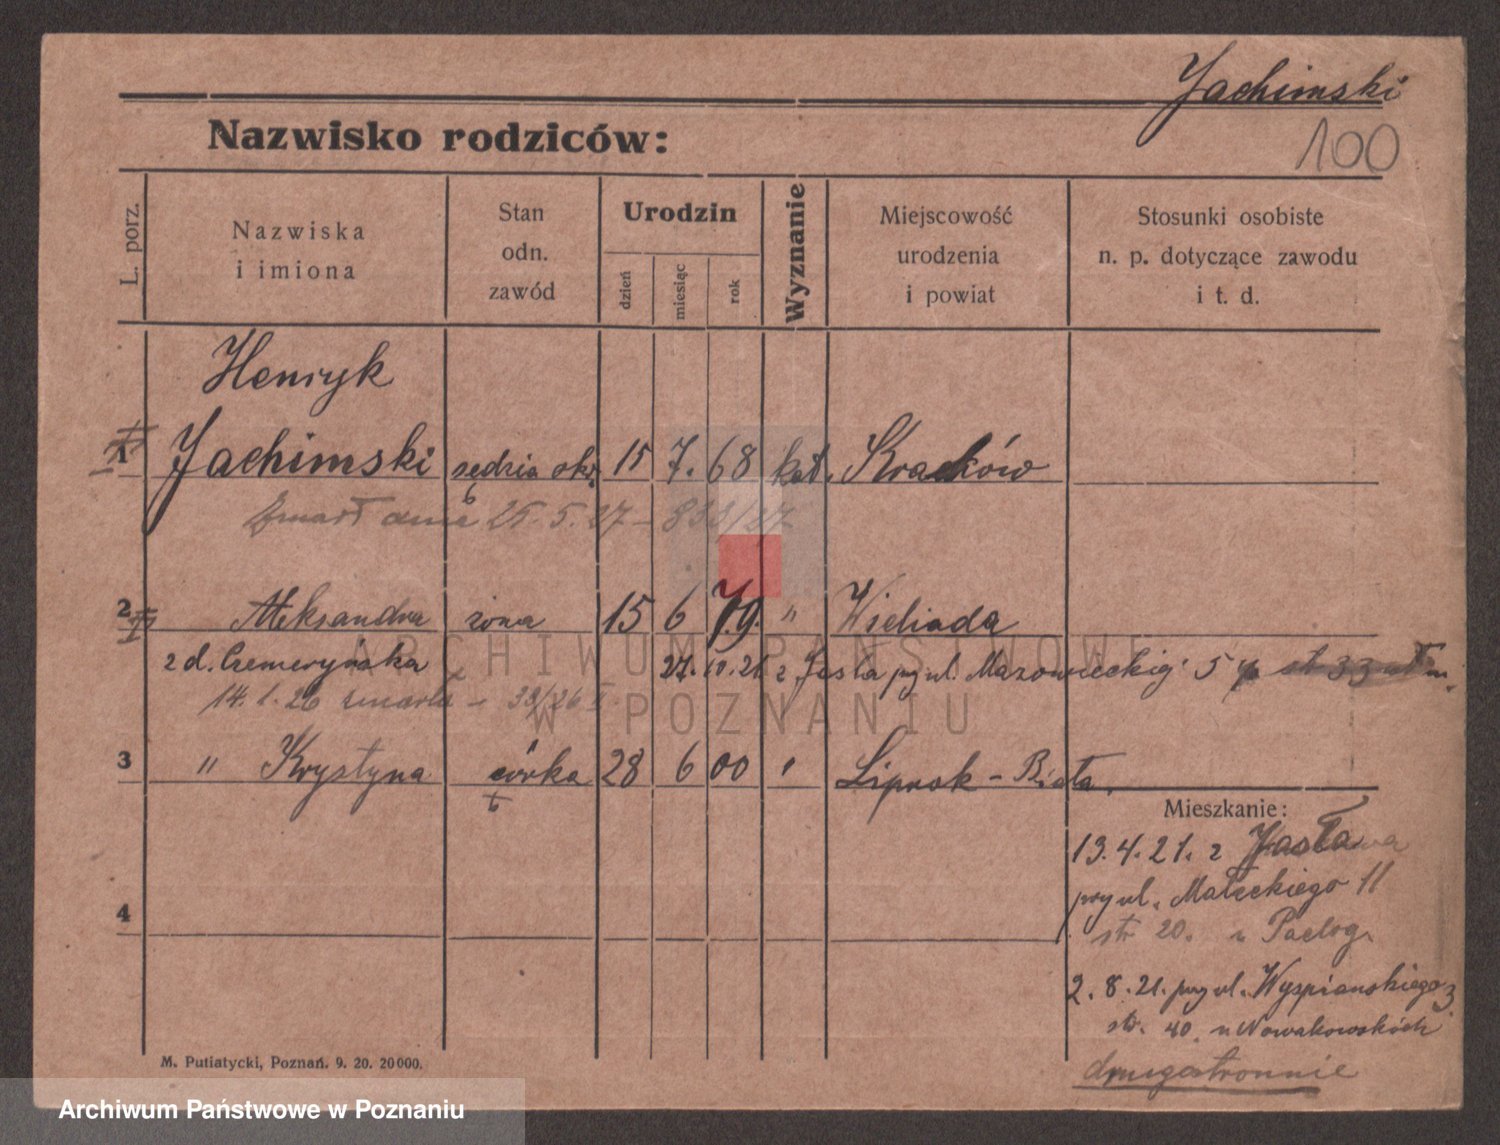 Jachimski
100
Nazwisko rodziców:
L. porz.
Nazwiska
i imiona
Stan
odn.
zawód
Urodzin
dzień
miesiąc
rok
Wyznanie
Miejscowość
urodzenia
i powiat
Stosunki osobiste
n. p. dotyczące zawodu
i t. d.
Henryk
1 Jachimski sędzia okr. 15 7. 68 kat. Kraków
Zmarł dnia 25. 5. 27 - 833/27
2 Aleksandra żona 15 6 79. " Wieliada
z d. Czemeryńska 27. 10. 21 z Jasła przy ul. Mazowieckiej 5
14. 1. 26 zmarła - 33/26 II
3 " Krystyna córka 28 6 00 " Lipnik - Biała.
Mieszkanie:
13. 4. 21. z Jasła
przy ul. Małeckiego 11
str 20. u Paelog.
4
2. 8. 21. przy ul. Wyspiańskiego 3.
str. 40. u Nowakowskich
drugostronnie
M. Putiatycki, Poznań. 9. 20. 20000.
ARCHIWUM PAŃSTWOWE
W POZNANIU
Archiwum Państwowe w Poznaniu